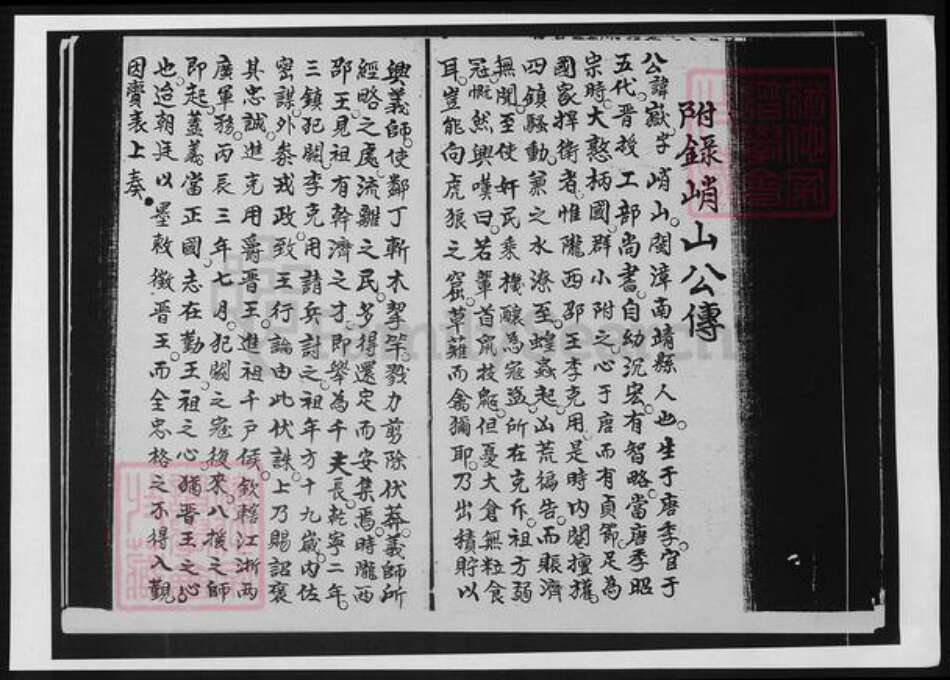 附錄峭山公傳
公諱嶽字峭山。閩漳南靖縣人也。生于唐季。官于
五代。晋授工部尚書。自幼沉宏。有智略。當唐季昭
宗時。大憝柄國。群小附之。心于唐而有貞節。足為
國家捍衛者。惟隴西邵王李克用。是時內閣擅權。
四鎮騷動。兼之水潦至。蝗虫起。凶荒徧告。而賬濟
無聞。至使奸民乘機釀為寇盜。所在克斥。祖方弱
冠。慨然興嘆曰。若輩首鼠技窮。但憂大倉無粒食
耳。豈能向虎狼之窟。草薙而禽獮耶。乃出積貯以
興義師。使鄰丁斬木挈竿。戮力剪除伏莽。義師所
經略之處。流離之民。多得還定而安集焉。時隴西
邵王。見祖有幹濟之才。即舉為千夫長。乾寧二年。
三鎮犯闕。李克用請兵討之。祖年方十九歲。內佐
密謀。外叅戎政。致王行瑜由此伏誅。上乃賜詔褒
其忠誠。進克用爵晋王。進祖千户候。欽轄江浙兩
廣軍務。丙辰三年七月。犯闕之寇復來。八援之師
即起。蓋義當正國。志在勤王。祖之心。猶晋王之心
也。迨朝廷以墨敕徵晋王。而全忠格之不得入覲
因賫表上奏。